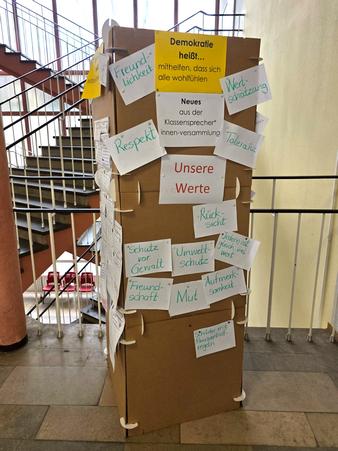 Demokratie
heißt...
mithelfen, dass sich
alle wohlfühlen
Freund-
lichkeit
Wert-
schätzung
Neues
aus der
Klassensprecher*
innen-versammlung
Respekt
Toleranz
Unsere
Werte
Rück-
sicht
Schutz
vor
Gewalt
Umwelt-
schutz
Jede*r ist
gleich viel
Wert
Freund-
schaft
Mut
Aufmerk-
samkeit
regeln